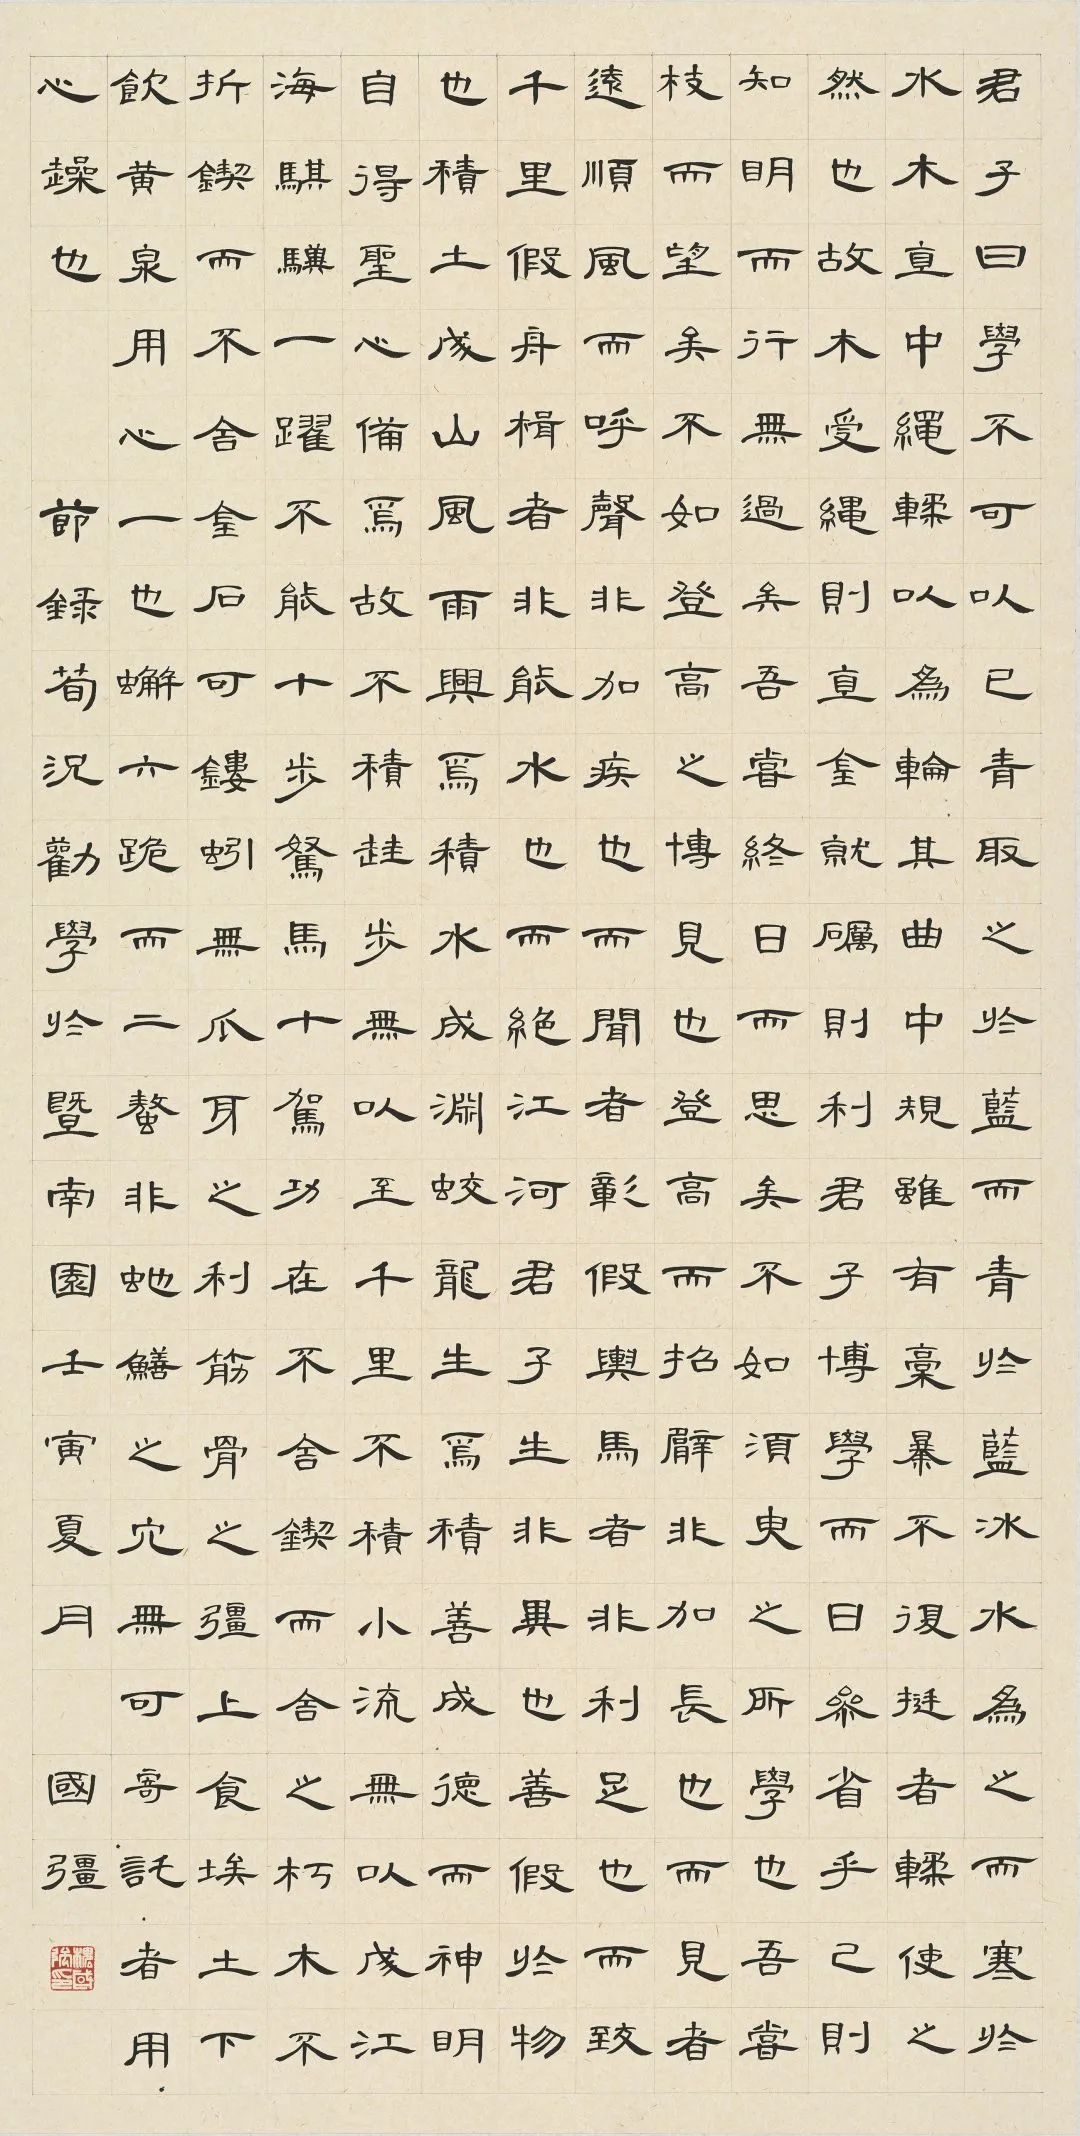 君子曰學不可以已青取之於藍而青於藍冰水為之而寒於
水木直中繩輮以為輪其曲中規雖有槀暴不復挺者輮使之
然也故木受繩則直金就礪則利君子博學而日參省乎己則
知明而行無過矣吾嘗終日而思矣不如須臾之所學也吾嘗
枝而望矣不如登高之博見也登高而招臂非加長也而見者
遠順風而呼聲非加疾也而聞者彰假輿馬者非利足也而致
千里假舟楫者非能水也而絕江河君子生非異也善假於物
也積土成山風雨興焉積水成淵蛟龍生焉積善成德而神明
自得聖心備焉故不積䞨步無以至千里不積小流無以成江
海騏驥一躍不能十步駑馬十駕功在不舍鍥而舍之朽木不
折鍥而不舍金石可鏤蚓無爪牙之利筋骨之彊上食埃土下
飲黃泉用心一也蠏六跪而二螯非蛇鱔之穴無可寄託者用
心趮也 節錄荀況勸學於暨南園壬寅夏月 國彊